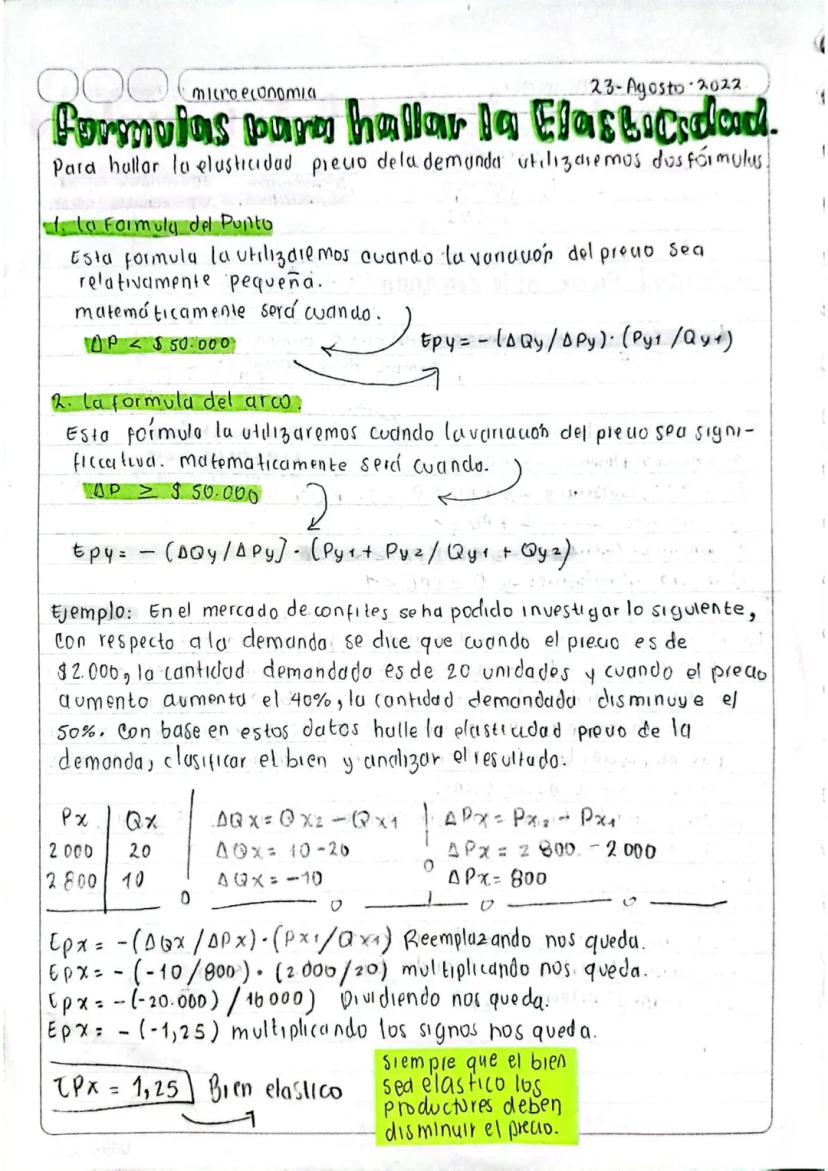 microeconomia 23-Agosto-2022
Formulas para hallar la Elasticidad.
Para hallar la elasticidad precio de la demanda utilizaremos dos fórmulas.
1. La Formula del Punto
Esta formula la utilizaremos cuando la variación del precio sea
relativamente pequeña.
matemáticamente será cuando.
ΔP < $ 50.000 Epy = - (ΔQy / ΔPy) · (Py1 / Qy1)
2. La formula del arco.
Esta fórmula la utilizaremos cuando la variación del precio sea signi-
ficcativa. matematicamente será cuando.
ΔP ≥ $ 50.000
Epy = - (ΔQy / ΔPy] · (Py1 + Py2 / Qy1 + Qy2)
Ejemplo: En el mercado de confites se ha podido investigar lo siguiente,
Con respecto a la demanda se dice que cuando el precio es de
$2.000, la cantidad demandada es de 20 unidades y cuando el precio
aumento aumenta el 40%, la cantidad demandada disminuye el
50%. Con base en estos datos halle la elasticidad precio de la
demanda, clasificar el bien y analizar el resultado.
Px Qx ΔQx = Qx2 - Qx1 ΔPx = Px2 - Px1
2000 20 ΔQx = 10-20 ΔPx = 2800 - 2000
2800 10 ΔQx = -10 ΔPx = 800
Epx = -(ΔQx / ΔPx) · (Px1 / Qx1) Reemplazando nos queda.
Epx = - (-10 / 800) · (2000 / 20) multiplicando nos queda.
Epx = - (-20.000) / 16000) Dividiendo nos queda.
Epx = - (-1,25) multiplicando los signos nos queda.
EPx = 1,25 Bien elastico
siempre que el bien
sea elastico los
productores deben
disminuir el precio.